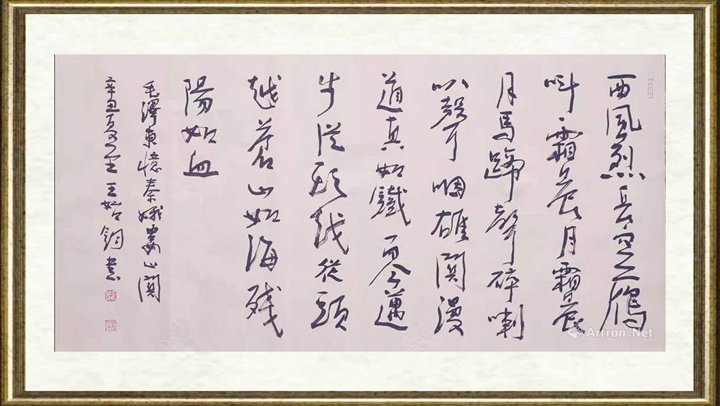 西風烈長空雁
叫霜晨月霜晨
月馬蹄聲碎喇
叭聲咽雄關漫
道真如鐵而今邁
步從頭越從頭
越蒼山如海殘
陽如血
毛澤東憶秦娥婁山關
辛丑夏王書
Artron.Net